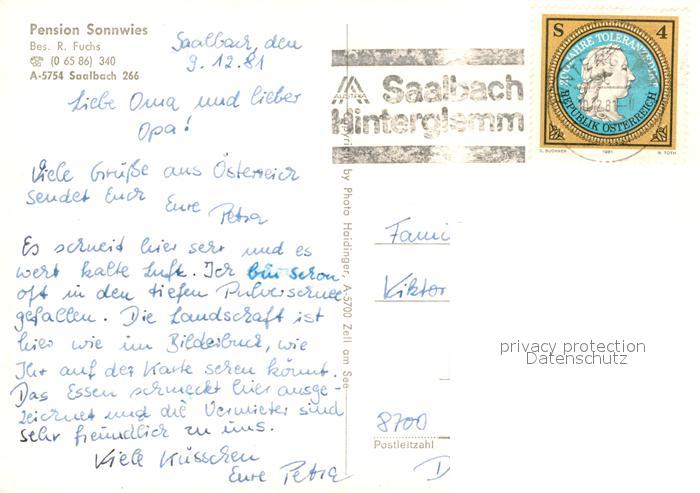 Pension Sonnwies
Bes. R. Fuchs
☎ (0 65 86) 340
A-5754 Saalbach 266
Saalbach, den
9.12.81
Liebe Oma und lieber
Opa!
Viele Grüße aus Österreich
sendet Euch
Eure Petra
Es schneit hier sehr und es
weht kalte Luft. Ich bin schon
oft in den tiefen Pulverschnee
gefallen. Die Landschaft ist
hier wie im Bilderbuch, wie
Ihr auf der Karte sehen könnt.
Das Essen schmeckt hier ausge-
zeichnet und die Vermieter sind
sehr freundlich zu uns.
Viele Küsschen
Eure Petra
by Photo Haidinger, A-5700 Zell am See
Saalbach
Hinterglemm
S 4
JAHRE TOLERANZ
REPUBLIK ÖSTERREICH
1981
Fami
Viktor
privacy protection
Datenschutz
8700
Postleitzahl
D